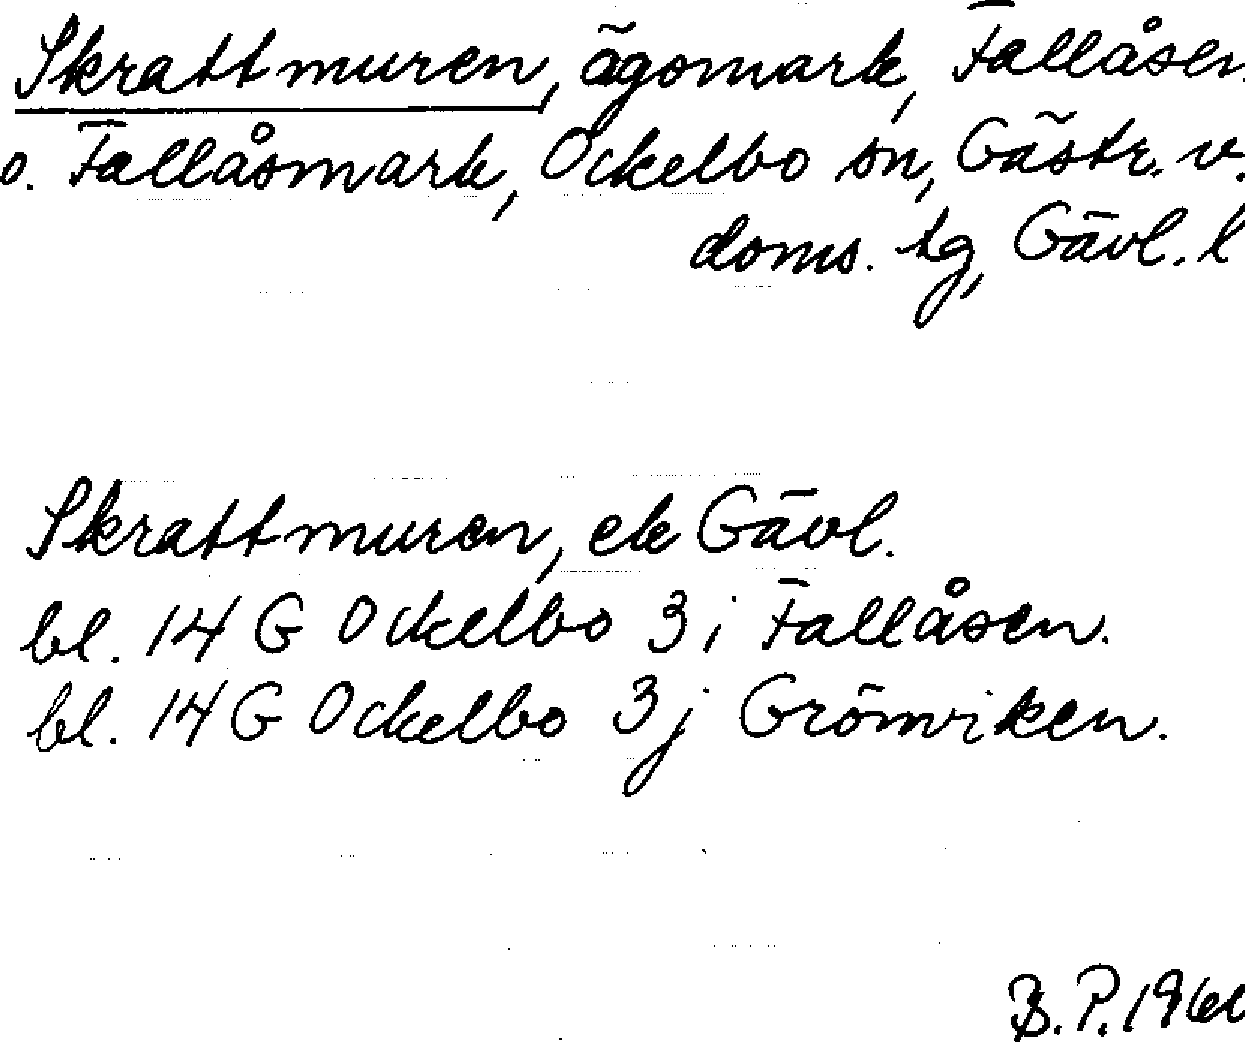 Skrattmuren, ägomark, Fallåsen
o. Fallåsmark, Ockelbo sn, Gästr. v.
doms. tg, Gävl. l
Skrattmuren, ek Gävl.
bl. 14 G Ockelbo 3 i Fallåsen.
bl. 14 G Ockelbo 3 j Grönviken.
B. P.